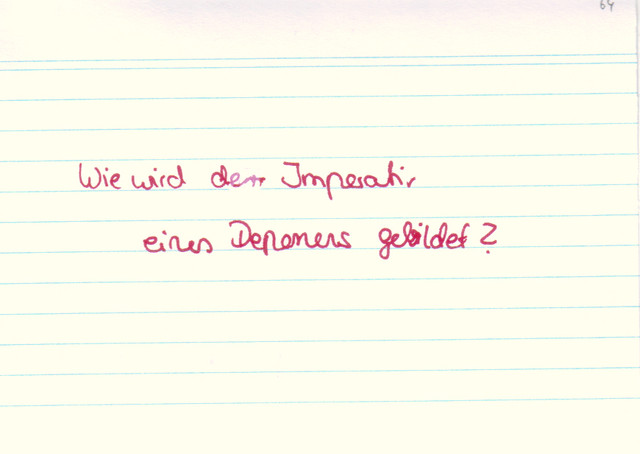 64
Wie wird der Imperativ
eines Deponens gebildet?